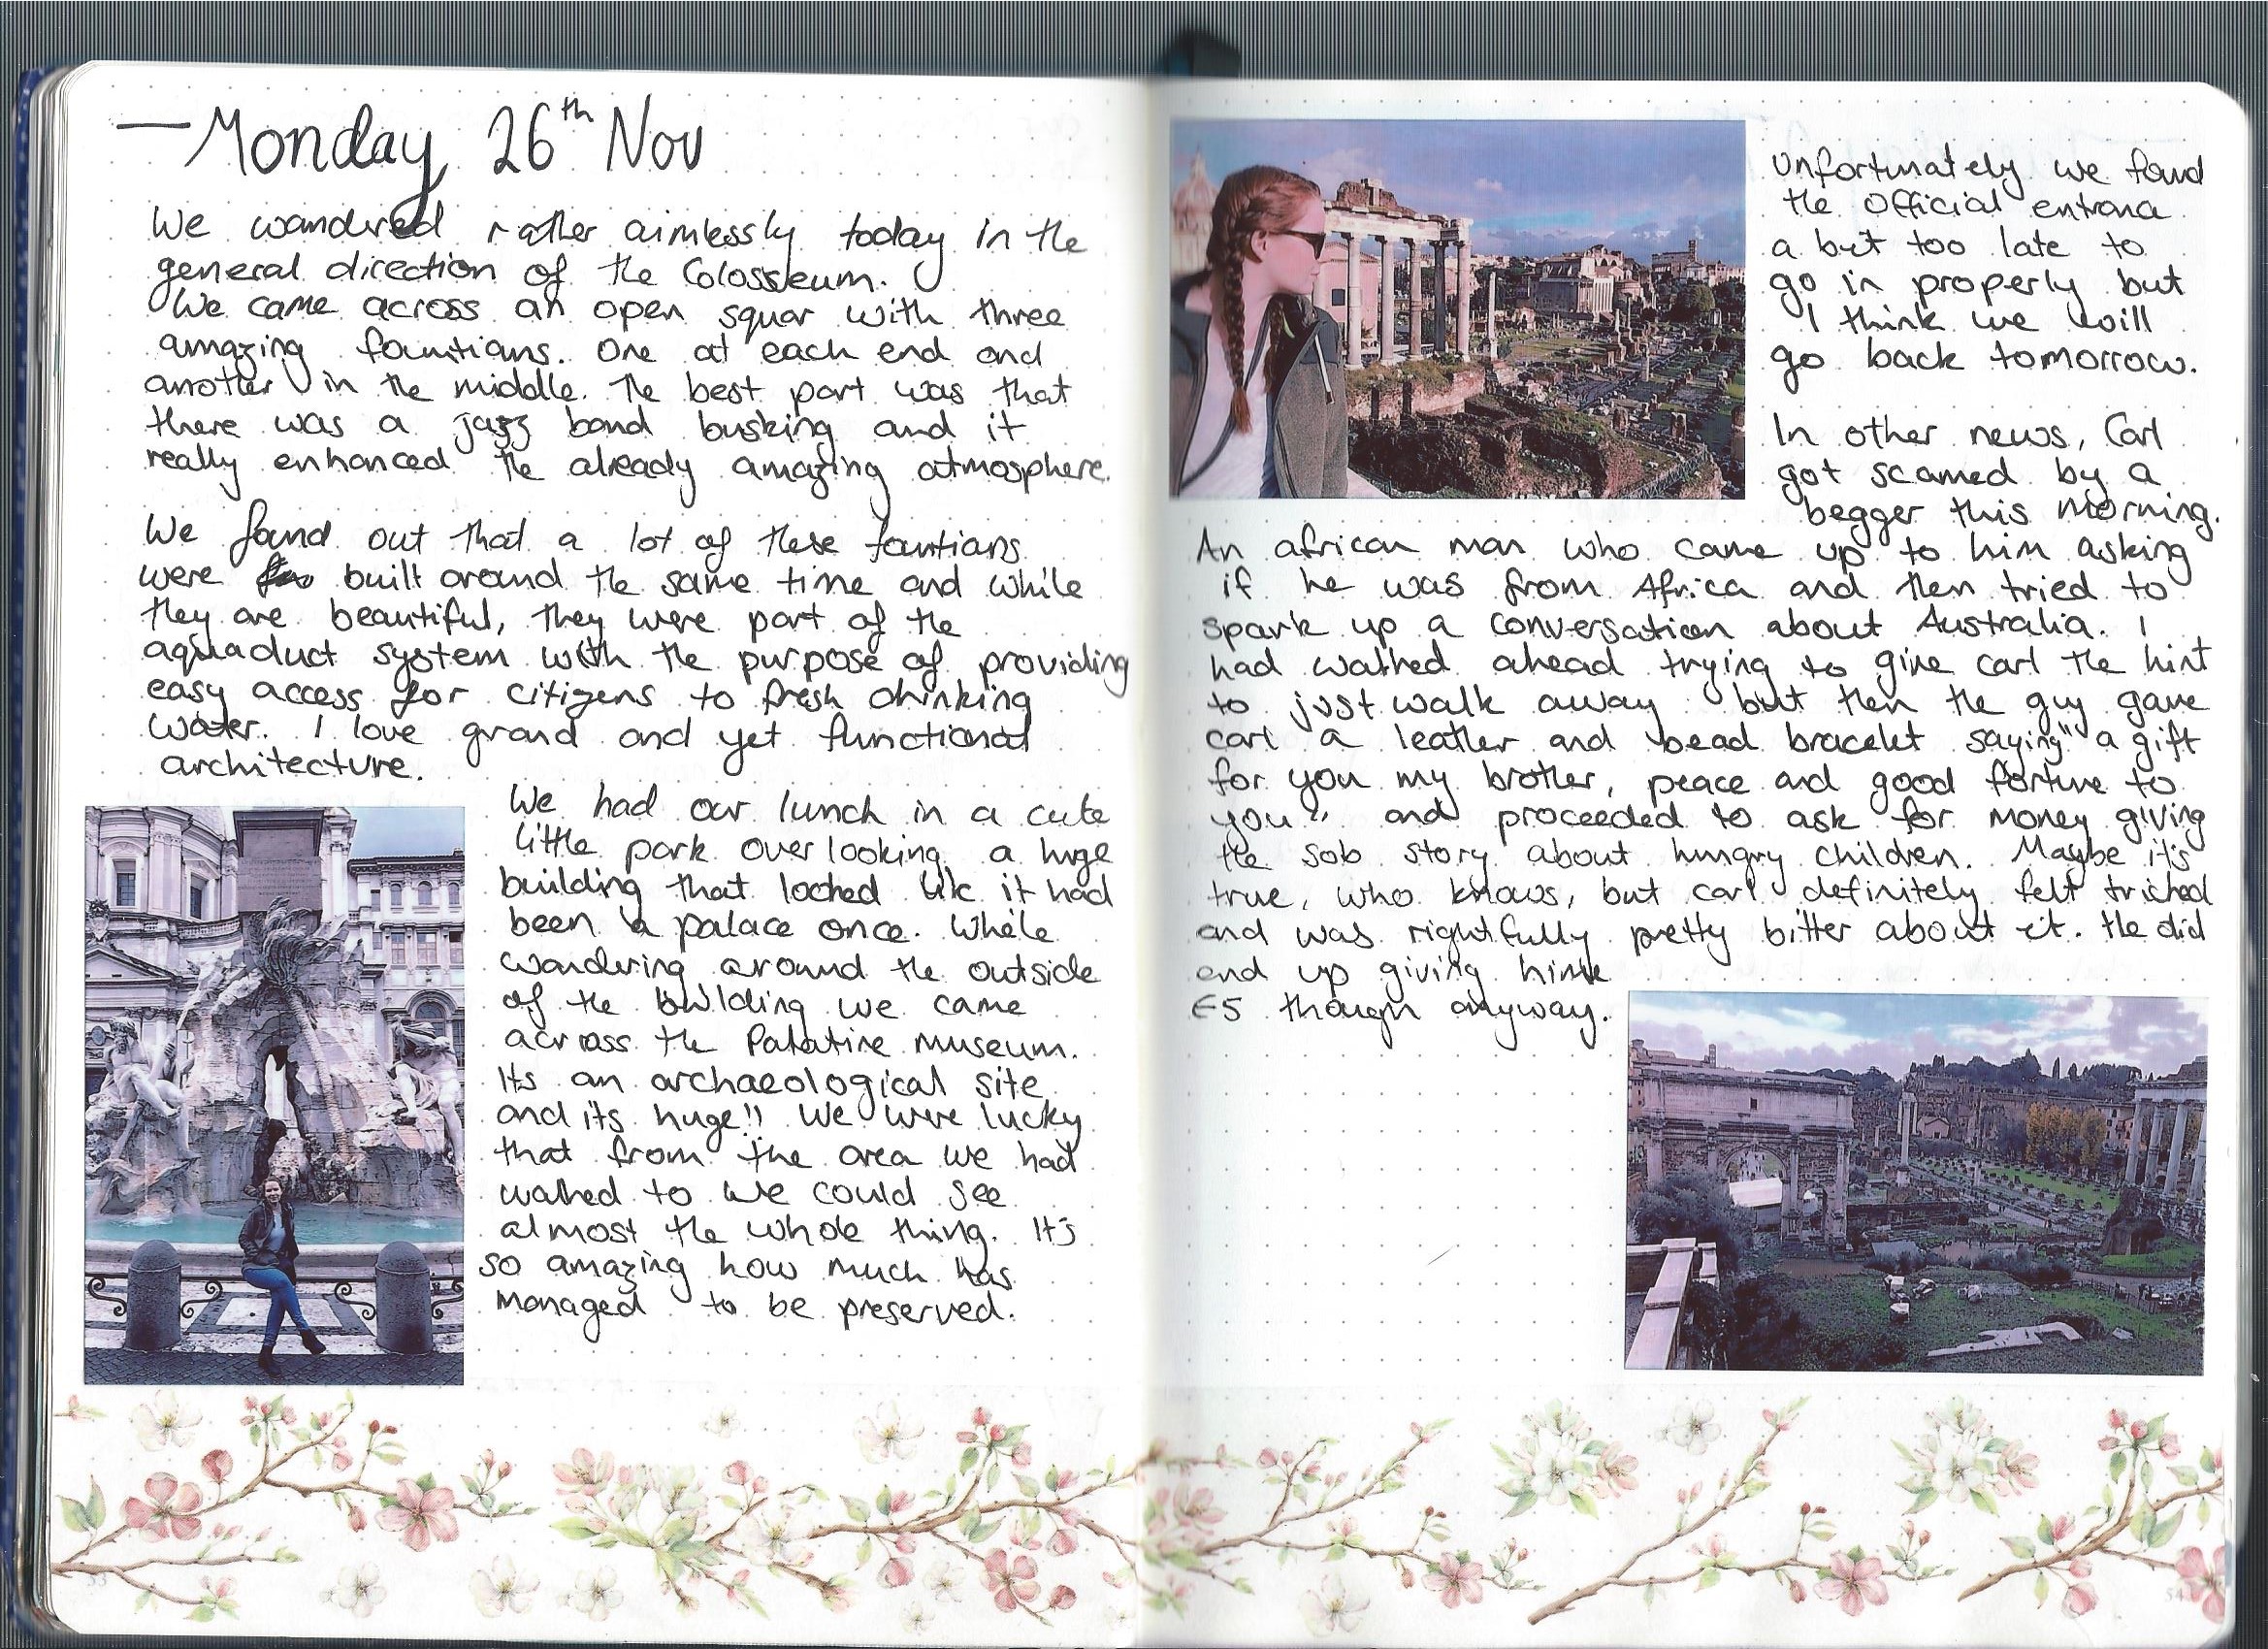 Monday 26th Nov
We wandered rather aimlessly today in the
general direction of the Colosseum.
We came across an open squar with three
amazing fountians. One at each end and
another in the middle. The best part was that
there was a jazz band busking and it
really enhanced the already amazing atmosphere.
We found out that a lot of these fountians
were built around the same time and while
they are beautiful, they were part of the
aquaduct system with the purpose of providing
easy access for citizens to fresh drinking
water. I love grand and yet functional
architecture.
We had our lunch in a cute
little park overlooking a huge
building that looked like it had
been a palace once. While
wandering around the outside
of the building we came
across the Palatine museum.
Its an archaeological site
and its huge!! We were lucky
that from the area we had
walked to we could see
almost the whole thing. It's
so amazing how much has
managed to be preserved.
53
Unfortunately we found
the official entrance
a bit too late to
go in properly but
I think we will
go back tomorrow.
In other news, Carl
got scamed by a
begger this morning.
An african man who came up to him asking
if he was from Africa and then tried to
spark up a conversation about Australia. I
had walked ahead trying to give carl the hint
to just walk away but then the guy gave
carl a leather and bead bracelet saying "a gift
for you my brother, peace and good fortune to
you" and proceeded to ask for money giving
the sob story about hungry children. Maybe it's
true, who knows, but carl definitely felt tricked
and was rightfully pretty bitter about it. He did
end up giving him
€5 though anyway.
54